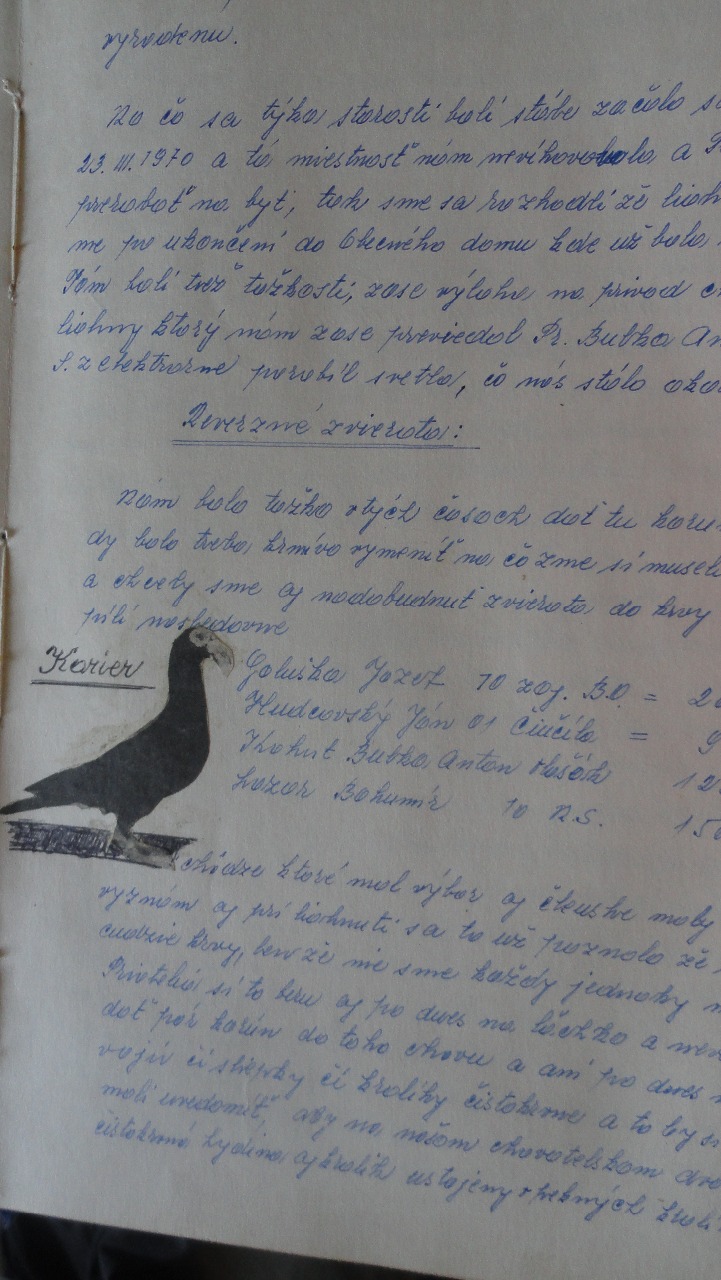 vyrodenu.
No čo sa týka starostí bolí stále začalo sa
23.III.1970 a tá miestnosť nám nevihovovala a P
prerobať na byt, tak sme sa rozhodli zě liah
me po ukončení do Obecného domu kde už bolo
Tám bolí tiež tažkosti, zase výloha na privod
liahny ktorý nám zase previedol Pr. Bubka An
S. z elektrarne porobil svetla, čo nás stálo oko
Reverzné zvierata:
Nám bolo tažko vtých časoch dať tu koru
dy bolo treba krmivo vymeniť na čo zme si museli
a chcely sme aj nadobudnuť zvierata do krvy
pili nasledovne
Karier
Galuška Jozef 10 zaj. B.O. = 2
Hudcovský Ján 01 Činčila = 9
Kohut Bubka Anton 12
Lazar Bohumír 10 R.S. 150
chôdze ktoré mal výbor aj členske maly
vyznám aj pri liahnuti sa to už poznalo zě
cudzie krvy, lenže nie sme každy jednaky
Priatelia si to beru aj po dnes na lächko a
dať pár korún do toho chovu a ani po dnes
čí sliepky čí kroliky čistokrvne a to by si
mali uvedomiť, aby na našom chovatelskom dvo
čistokrvná hydina aj krolik ustajeny v pekných